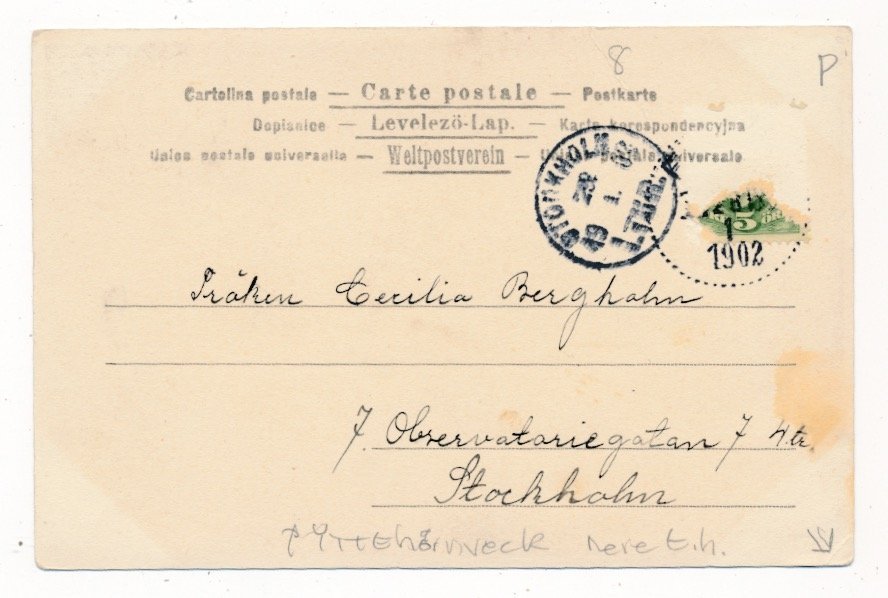 8
P
Cartolina postale — Carte postale — Postkarte
Dopisnice — Levelező-Lap. — Karta korespondencyjna
Union postale universelle — Weltpostverein — Unione postale universale
STOCKHOLM
28
1
19
1.TUR.
5
1
1902
Fröken Cecilia Bergholm
7. Observatoriegatan 7 4 tr.
Stockholm
YTTEhörnveck nere t.h.